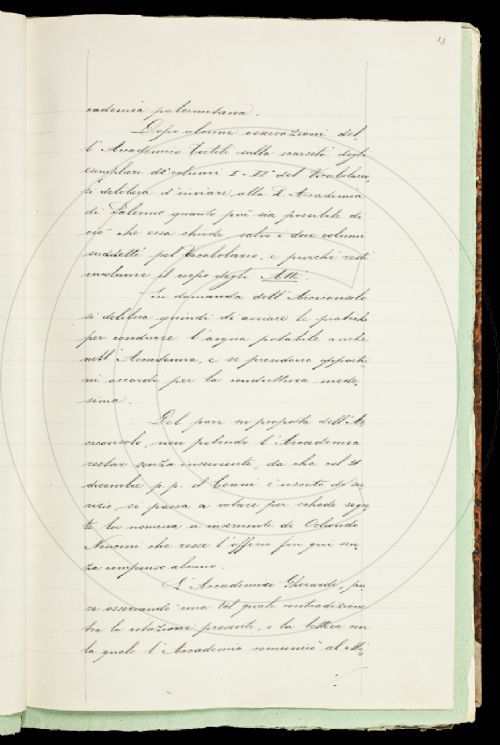 13
cademia palermitana.
Dopo alcune osservazioni del-
l'Accademico Tortoli sulla scarsità degli
esemplari de' volumi I e II del Vocabolario,
si delibera d'inviare alla R. Accademia
di Palermo quanto più sia possibile di
ciò che essa chiede salvo i due volumi
suddetti pel Vocabolario, e purché resti
invulnerato il corpo degli Atti.
In domanda dell'Arciconsolo
si delibera quindi di avviare le pratiche
per condurre l'acqua potabile anche
nell'Accademia, e se prendono opportu-
ni accordi per la conduttura mede-
sima.
Del pari su proposta dell'Ar-
ciconsolo, non potendo l'Accademia
restar senza inserviente, da che col 31
dicembre p. p. il Conni è uscito di ser-
vizio, si passa a votare per schede segre-
te la nomina a inserviente di Orlando
Nencini che resse l'officio fin qui sen-
za compenso alcuno.
L'Accademico Gherardi, pu-
re osservando una tal quale contradizione
tra la votazione presente, e la lettera con
la quale l'Accademia comunicò al Mi-